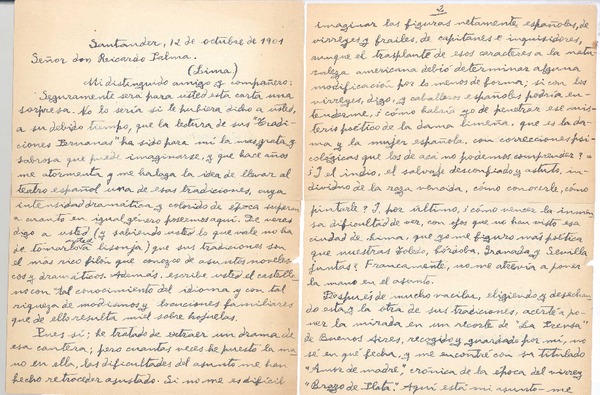 Santander, 12 de octubre de 1901
Señor don Ricardo Palma.
(Lima)
Mi distinguido amigo y compañero:
Seguramente será para usted esta carta una
sorpresa. No lo sería si le hubiera dicho a usted,
a su debido tiempo, que la lectura de sus "Tradi
ciones Peruanas" ha sido para mí la mas grata y
sabrosa que puede imaginarse, y que hace años
me atormenta y me halaga la idea de llevar al
teatro español una de esas tradiciones, cuya
intensidad dramática y colorido de época superan
a cuanto en igual género poseemos aquí. De veras
digo a usted (y sabiendo usted lo que vale no ha
de tomarlo usted a lisonja) que sus tradiciones son
el más rico filón que conozco de asuntos noveles-
cos y dramáticos. Además, escribe usted el castella
no con tal conocimiento del idioma y con tal
riqueza de modismos y locuciones familiares
que de ello resulta miel sobre hojuelas.
Pues sí; he tratado de extraer un drama de
esa cantera; pero cuantas veces he puesto la ma
no en ella, las dificultades del asunto me han
hecho retroceder asustado. Si no me es difícil
2
imaginar las figuras netamente españolas, de
virreyes y frailes, de capitanes e inquisidores,
aunque el trasplante de esos caracteres a la natu
raleza americana debió determinar alguna
modificación por lo menos de forma; si con los
virreyes, digo, y caballeros españoles podría en-
tenderme, ¿cómo habría yo de penetrar ese mis-
terio poético de la dama limeña, que es la da-
ma y la mujer española, con correcciones psi-
cológicas que los de acá no podemos comprender?
¿Y el indio, el salvaje desconfiado y astuto, in-
dividuo de la raza vencida, cómo conocerle, cómo
pintarle? Y, por último, ¿cómo vencer la inmen
sa dificultad de ver, con ojos que no han visto esa
ciudad de Lima, que yo me figuro más poética
que nuestras Toledo, Córdoba, Granada y Sevilla
juntas? Francamente, no me atrevía a poner
la mano en el asunto.
Después de mucho vacilar, eligiendo y desechan
do esta y la otra de sus tradiciones, acerté a po-
ner la mirada en un recorte de "La Prensa"
de Buenos Aires, recogido y guardado por mí, no
sé en qué fecha, y me encontré con su titulado
"Amor de madre", crónica de la época del virrey
"Brazo de Plata". Aquí está mi asunto-me